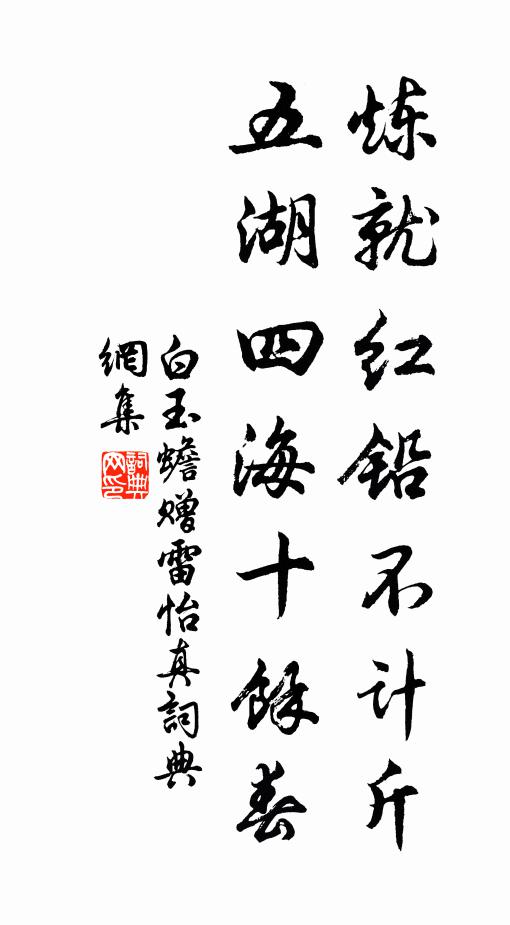 炼就红铅不计斤
五湖四海十馀春
白玉蟾赠雷怡真詞典
網集
詞典
网印